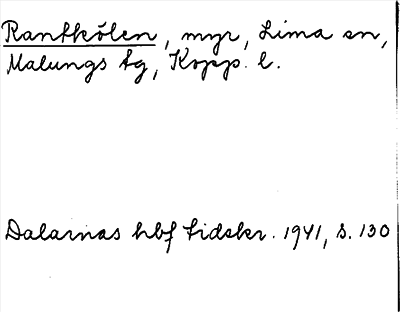 Rantkölen, myr, Lima sn,
Malungs tg, Kopp. l.
Dalarnas hbf tidskr. 1941, s. 130